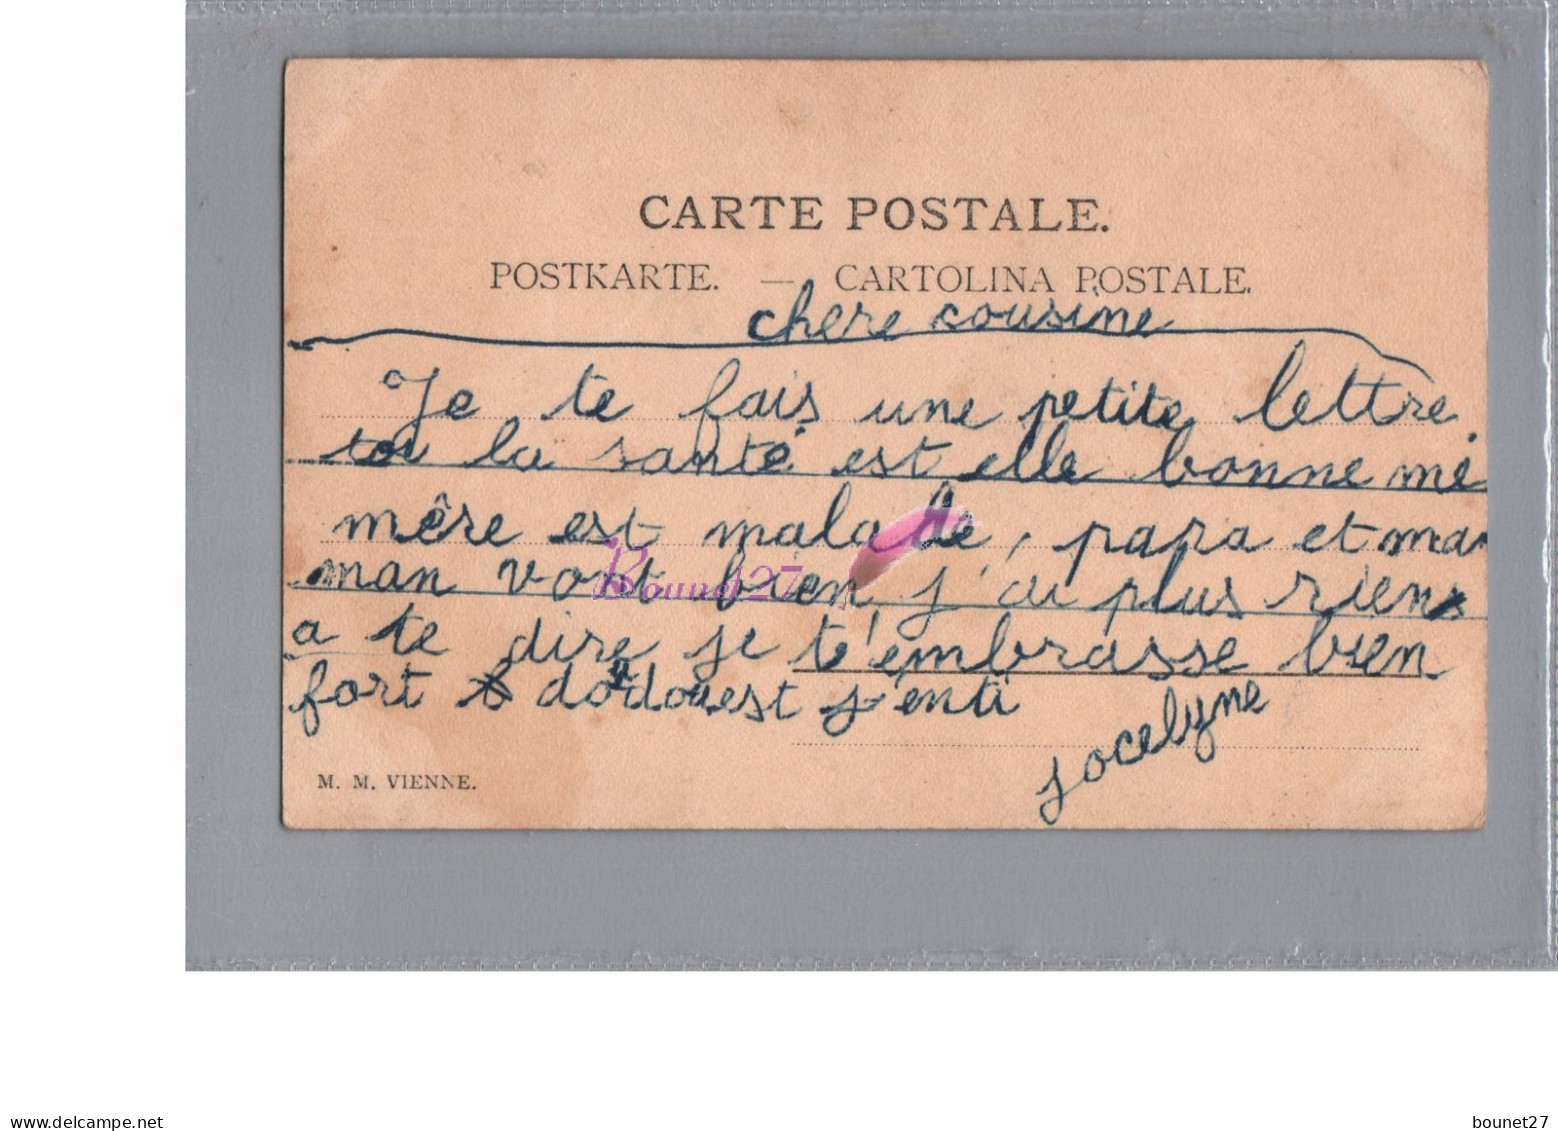 CARTE POSTALE.
POSTKARTE. — CARTOLINA POSTALE.
chere cousine
Je te fais une petite lettre.
toi la santé est elle bonne mé
mêre est malade, papa et ma
man vont bien, j'ai plus rien
a te dire je t'embrasse bien
fort dodouest j'enti
jocelyne
M. M. VIENNE.
Bounet27
delcampe.net
bounet27